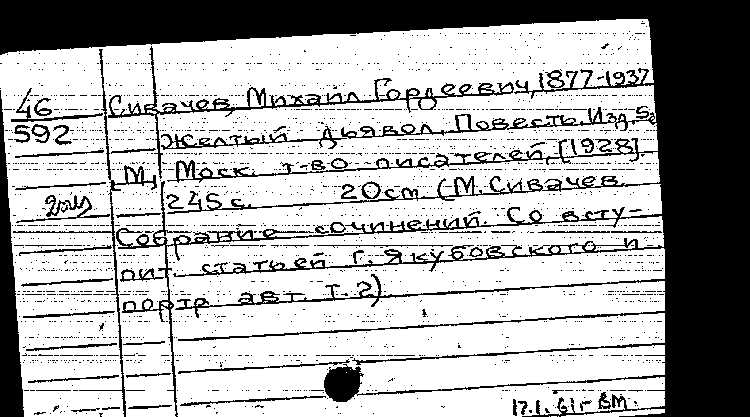 46
592
Сивачев, Михаил Гордеевич, 1877-1937
Желтый дьявол. Повесть. Изд. 5е
[М], Моск. т-во писателей, [1928].
245 с. 20см (М. Сивачев.
Собрание сочинений. Со всту-
пит. статьей Г. Якубовского и
портр авт. Т. 2)
17.1.61г ВМ.